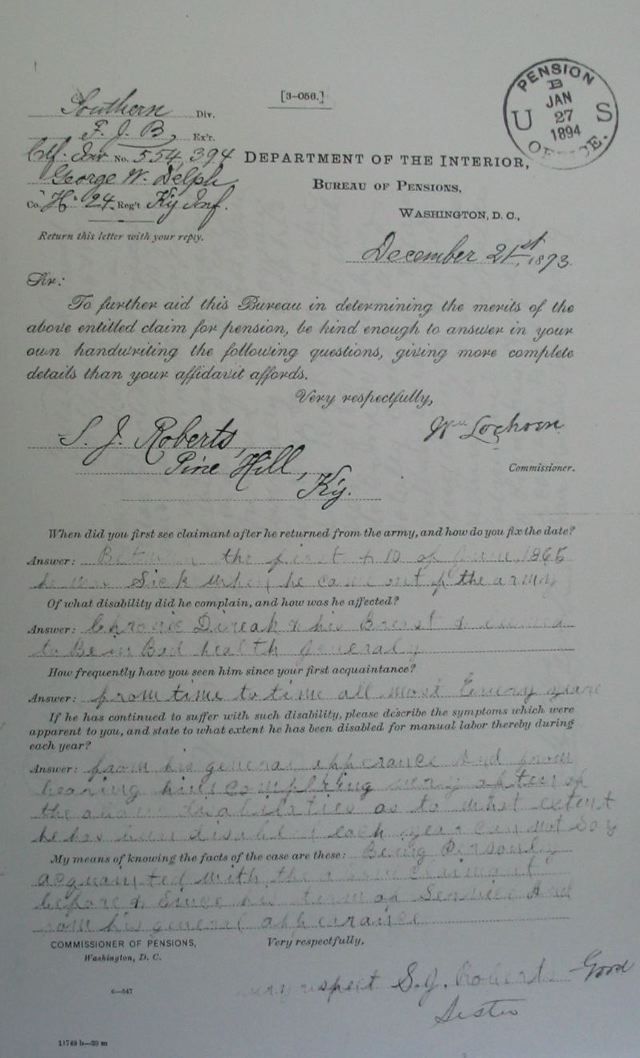 Southern Div.
[3-056.]
PENSION
B
JAN
27
1894
U S
OFFICE.
F. J. B, Ex'r.
Ctf. Inv No. 554,394
DEPARTMENT OF THE INTERIOR,
George W. Delph
BUREAU OF PENSIONS,
Co. H. 24 Reg't Ky Inf.
WASHINGTON, D. C.,
Return this letter with your reply.
December 21st, 1893.
Sir:
To further aid this Bureau in determining the merits of the
above entitled claim for pension, be kind enough to answer in your
own handwriting the following questions, giving more complete
details than your affidavit affords.
Very respectfully,
Wm Lochren
S. J. Roberts,
Commissioner.
Pine Hill,
Ky.
When did you first see claimant after he returned from the army, and how do you fix the date?
Answer: Between the first & 10 of June 1865
he was Sick when he came out of the army
Of what disability did he complain, and how was he affected?
Answer: Chronic Direah & his Breast &
to Be in Bad health generaly
How frequently have you seen him since your first acquaintance?
Answer: from time to time all most Every year
If he has continued to suffer with such disability, please describe the symptoms which were
apparent to you, and state to what extent he has been disabled for manual labor thereby during
each year?
Answer: from his general apperance And from
hearing him complaing very often of
the above disabilaties as to what extent
he has been disabled each year can not Say
My means of knowing the facts of the case are these: Being Personly
acquainted with the claimant
before & Since his term of Service And
from his general apperance
COMMISSIONER OF PENSIONS,
Very respectfully,
Washington, D. C.
very respect S. J. Roberts Good
6—547
11749 b—30 m